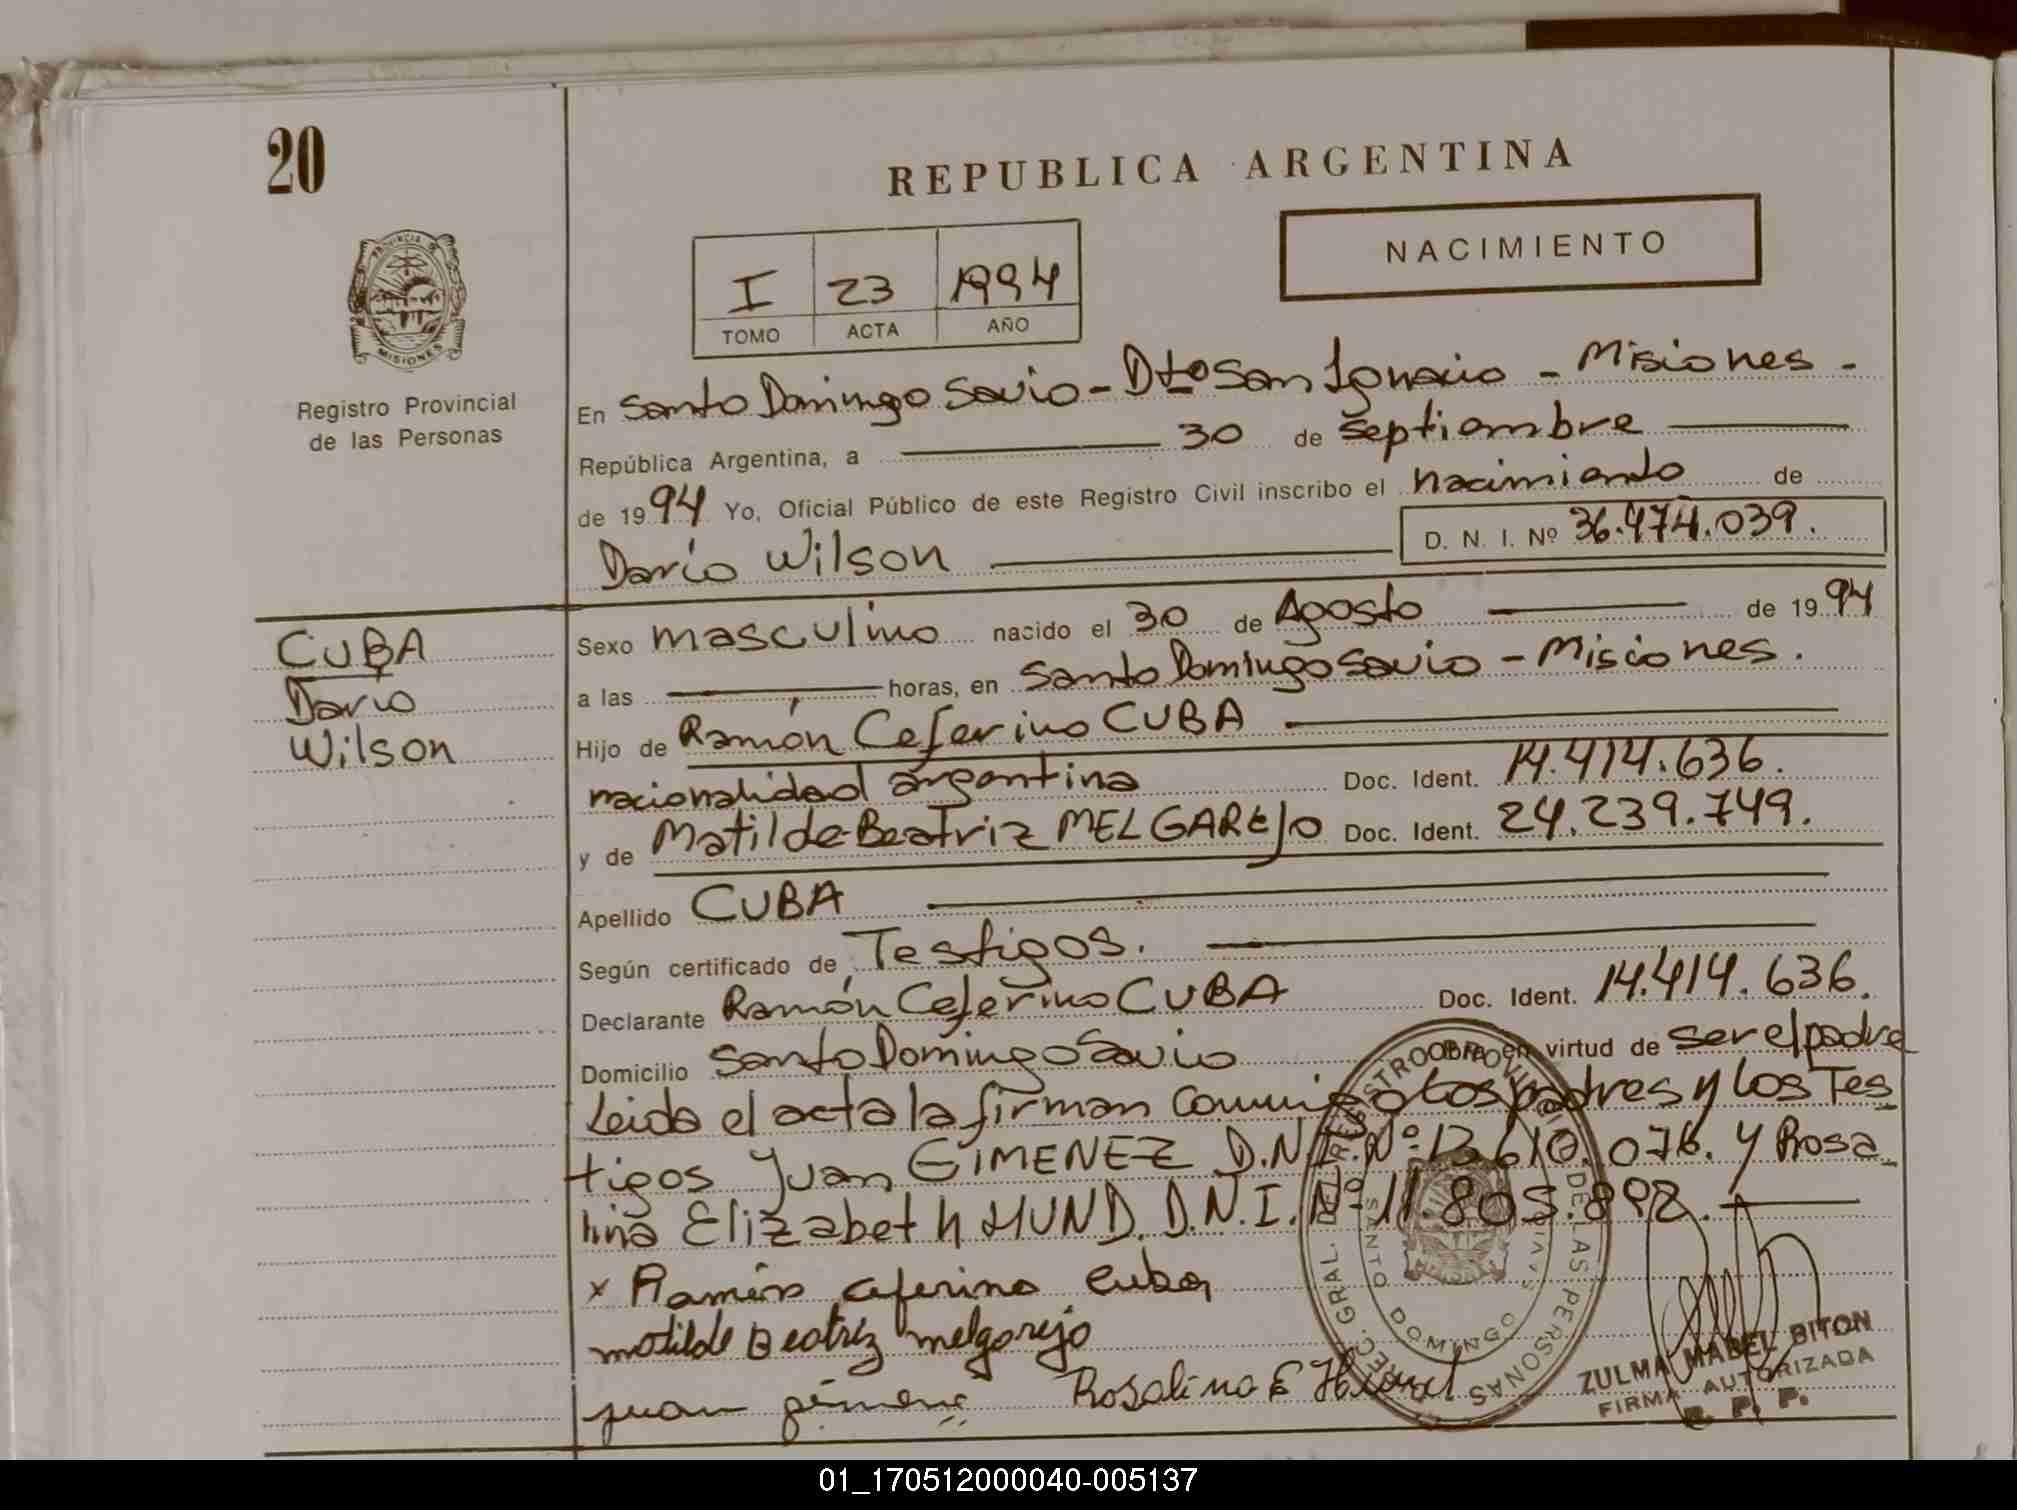 20
REPUBLICA ARGENTINA
NACIMIENTO
I 23 1994
TOMO ACTA AÑO
PROVINCIA
MISIONES
Registro Provincial
de las Personas
En Santo Domingo Savio - Dto San Ignacio - Misiones -
República Argentina, a 30 de Septiembre
de 1994 Yo, Oficial Público de este Registro Civil inscribo el nacimiento de
D. N. I. Nº 36.474.039.
Darío Wilson
CUBA
Darío
Wilson
Sexo masculino nacido el 30 de Agosto de 1994
a las horas, en Santo Domingo Savio - Misiones.
Hijo de Ramón Ceferino CUBA
nacionalidad argentina Doc. Ident. 14.414.636.
y de Matilde Beatriz MELGAREJO Doc. Ident. 24.239.749.
Apellido CUBA
Según certificado de Testigos.
Declarante Ramón Ceferino CUBA Doc. Ident. 14.414.636.
Domicilio Santo Domingo Savio Obra en virtud de ser el padre
Leida el acta la firman conmigo los padres y los Tes
tigos Juan GIMENEZ D.N.I. Nº 13.610.076. y Rosa
lina Elizabeth HUND. D.N.I. Nº 11.805.892.
x Ramón ceferino Cuba
matilde Beatriz melgarejo
juan Rosalina E Hund
DIREC. GRAL. DEL REGISTRO PROVINCIAL DE LAS PERSONAS
SANTO DOMINGO SAVIO
ZULMA MABEL BITON
FIRMA AUTORIZADA
R. P. P.
01_170512000040-005137